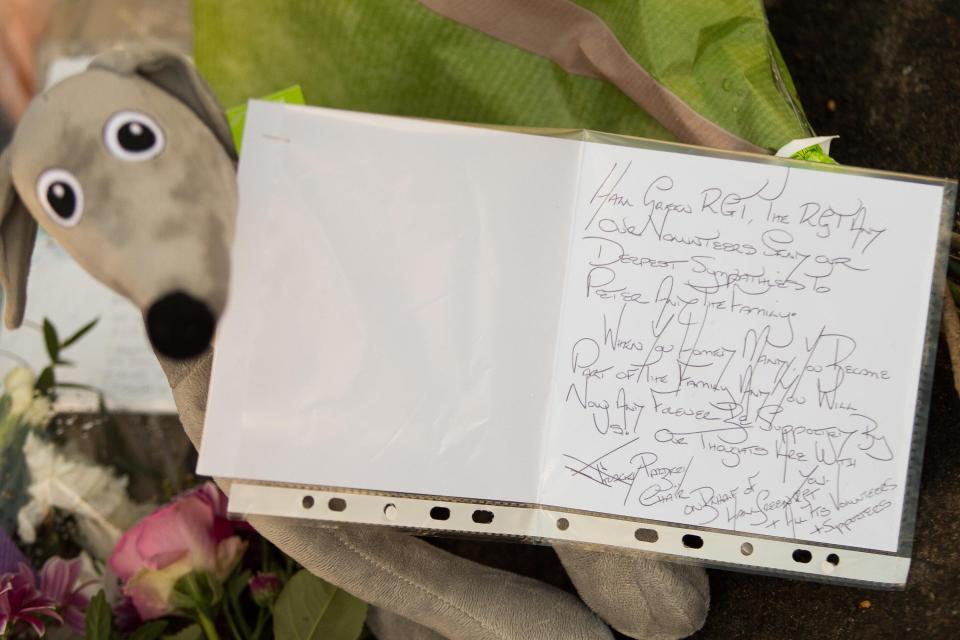 Ham Green RGT, The RGT And
Our Volunteers Send our
Deepest Sympathies to
Peter And The Family.
When you Home, you Become
Part of The Family And You Will
Now And Forever Be Supported By
Us! Our Thoughts Are With
You.
Chair on Behalf of
Ham Green RGT
+ All Its Volunteers
+ Supporters